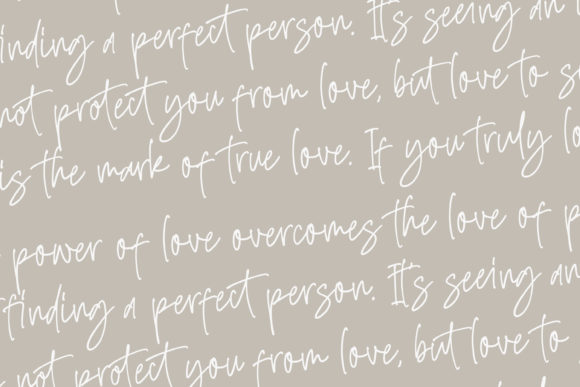 finding a perfect person. It's seeing an
not protect you from love, but love to
is the mark of true love. If you truly
power of love overcomes the love of
finding a perfect person. It's seeing an
not protect you from love, but love to